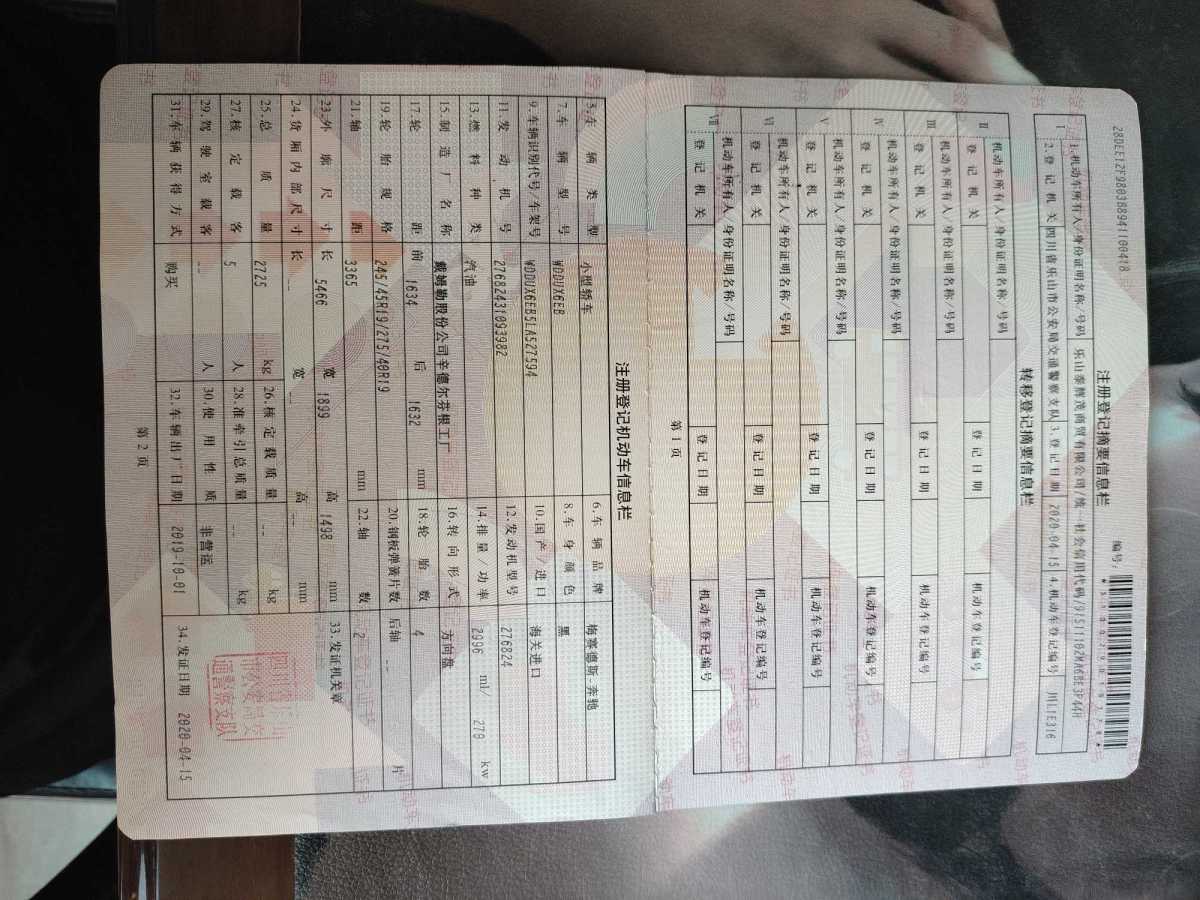 28DEE12F9803B8941100418
编号:
注册登记摘要信息栏
Ⅰ 1.机动车所有人/身份证明名称/号码 乐山泰辉茂商贸有限公司/统一社会信用代码/91511102MA68E3P44H
2.登记机关 四川省乐山市公安局交通警察支队 3.登记日期 2020-04-15 4.机动车登记编号 川L1E316
转移登记摘要信息栏
Ⅱ 机动车所有人/身份证明名称/号码
登记机关 登记日期 机动车登记编号
Ⅲ 机动车所有人/身份证明名称/号码
登记机关 登记日期 机动车登记编号
Ⅳ 机动车所有人/身份证明名称/号码
登记机关 登记日期 机动车登记编号
Ⅴ 机动车所有人/身份证明名称/号码
登记机关 登记日期 机动车登记编号
Ⅵ 机动车所有人/身份证明名称/号码
登记机关 登记日期 机动车登记编号
Ⅶ 机动车所有人/身份证明名称/号码
登记机关 登记日期 机动车登记编号
第1页
注册登记机动车信息栏
5.车辆类型 小型轿车 6.车辆品牌 梅赛德斯-奔驰
7.车辆型号 WDDUX6EB 8.车身颜色 黑
9.车辆识别代号/车架号 WDDUX6EB5LA527594 10.国产/进口 海关进口
11.发动机号 27682431093982 12.发动机型号 276824
13.燃料种类 汽油 14.排量/功率 2996 ml/ 270 kw
15.制造厂名称 戴姆勒股份公司辛德尔芬根工厂 16.转向形式 方向盘
17.轮距 前 1634 后 1632 mm 18.轮胎数 4
19.轮胎规格 245/45R19/275/40R19 20.钢板弹簧片数 后轴 -- 片
21.轴距 3365 mm 22.轴数 2
23.外廓尺寸 长 5466 宽 1899 高 1498 mm 33.发证机关章
24.货厢内部尺寸 长 -- 宽 -- 高 -- mm
25.总质量 2725 kg 26.核定载质量 -- kg
27.核定载客 5 人 28.准牵引总质量 -- kg
29.驾驶室载客 -- 人 30.使用性质 非营运
31.车辆获得方式 购买 32.车辆出厂日期 2019-10-01 34.发证日期 2020-04-15
第2页